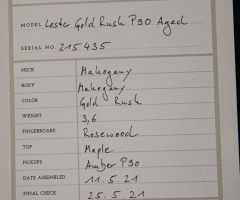 MODEL Lester Gold Rush P90 Aged
SERIAL NO. 215435
NECK Mahogany
BODY Mahogany
COLOR Gold Rush
WEIGHT 3,6
FINGERBOARD Rosewood
TOP Maple
PICKUPS Amber P90
DATE ASSEMBLED 11.5.21
FINAL CHECK 25.5.21